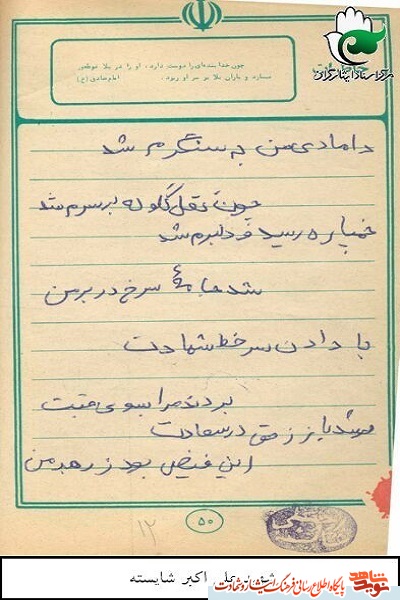 چون خدا بنده‌ای را دوست دارد، او را در بلا غوطور
سازد و باران بلا بر سر او ریزد. امام صادق (ع)
مرکز اسناد ایثارگران
دامادی من به سنگرم شد
چون نقل گلوله بر سرم شد
خمپاره رسید و دلبرم شد
شد جامهٔ سرخ در بر من
با دادن سر خط شهادت
بردند مرا بسوی جنت
در سعادت
این فیض بود ز رهبر من
۱۲
۵۰
شهید علی اکبر شایسته
نوید شاهد
پایگاه اطلاع رسانی فرهنگ ایثار و شهادت